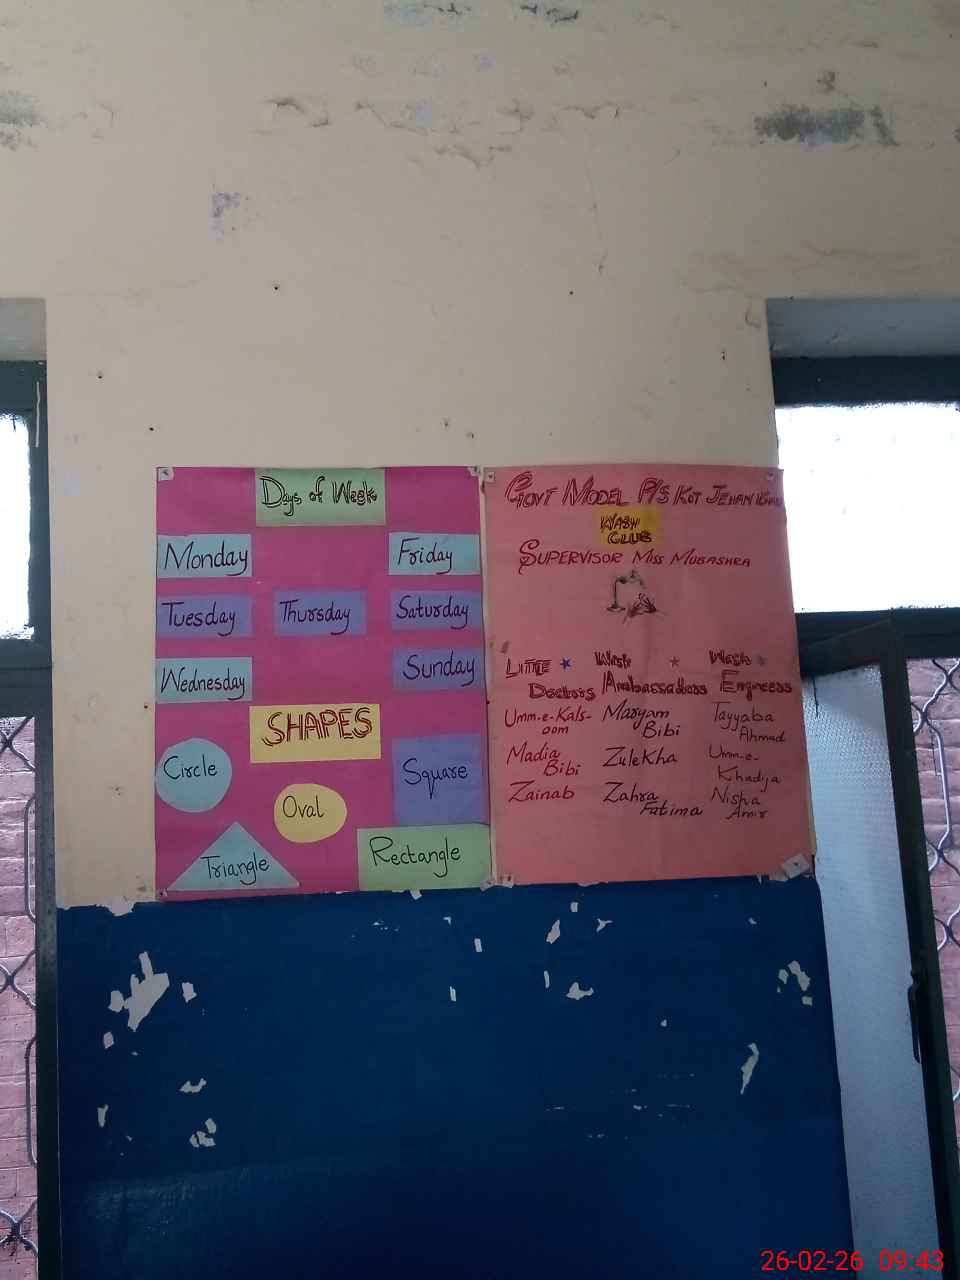 Days of Week
Monday
Friday
Tuesday
Thursday
Saturday
Wednesday
Sunday
SHAPES
Circle
Square
Oval
Triangle
Rectangle
GOVT MODEL P/S KOT JEHAN KHAN
WASH
CLUB
SUPERVISOR MISS MUBASHRA
LITTLE
Doctors
Umm-e-Kals-
oom
Madia
Bibi
Zainab
Wash
Ambassadors
Maryam
Bibi
ZuleKha
Zahra
Fatima
Wash
Engineers
Tayyaba
Ahmad
Umm-e-
Khadija
Nisha
Amir
26-02-26 09:43